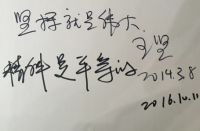 坚持就是伟大
王坚
精神是平等的
2014.3.8
2016.10.11